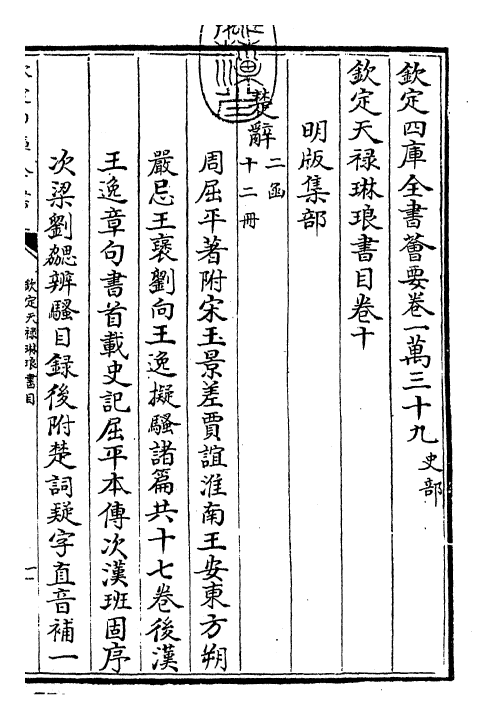 欽定四庫全書薈要卷一萬三十九史部
欽定天祿琳琅書目卷十
明版集部
楚辭二函十二冊
周屈平著附宋玉景差賈誼淮南王安東方朔
嚴忌王襃劉向王逸擬騷諸篇共十七卷後漢
王逸章句書首載史記屈平本傳次漢班固序
次梁劉勰辨騷目錄後附楚詞疑字直音補一
欽定天祿琳琅書目